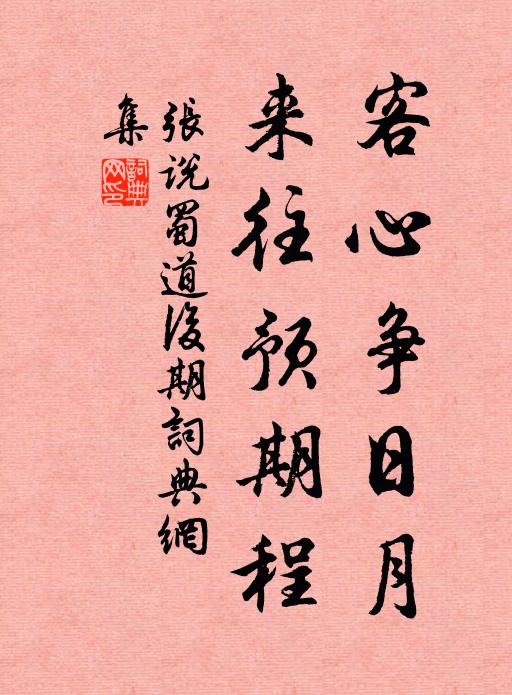 客心争日月
来往预期程
張说蜀道後期詞典網
集
詞典
网印